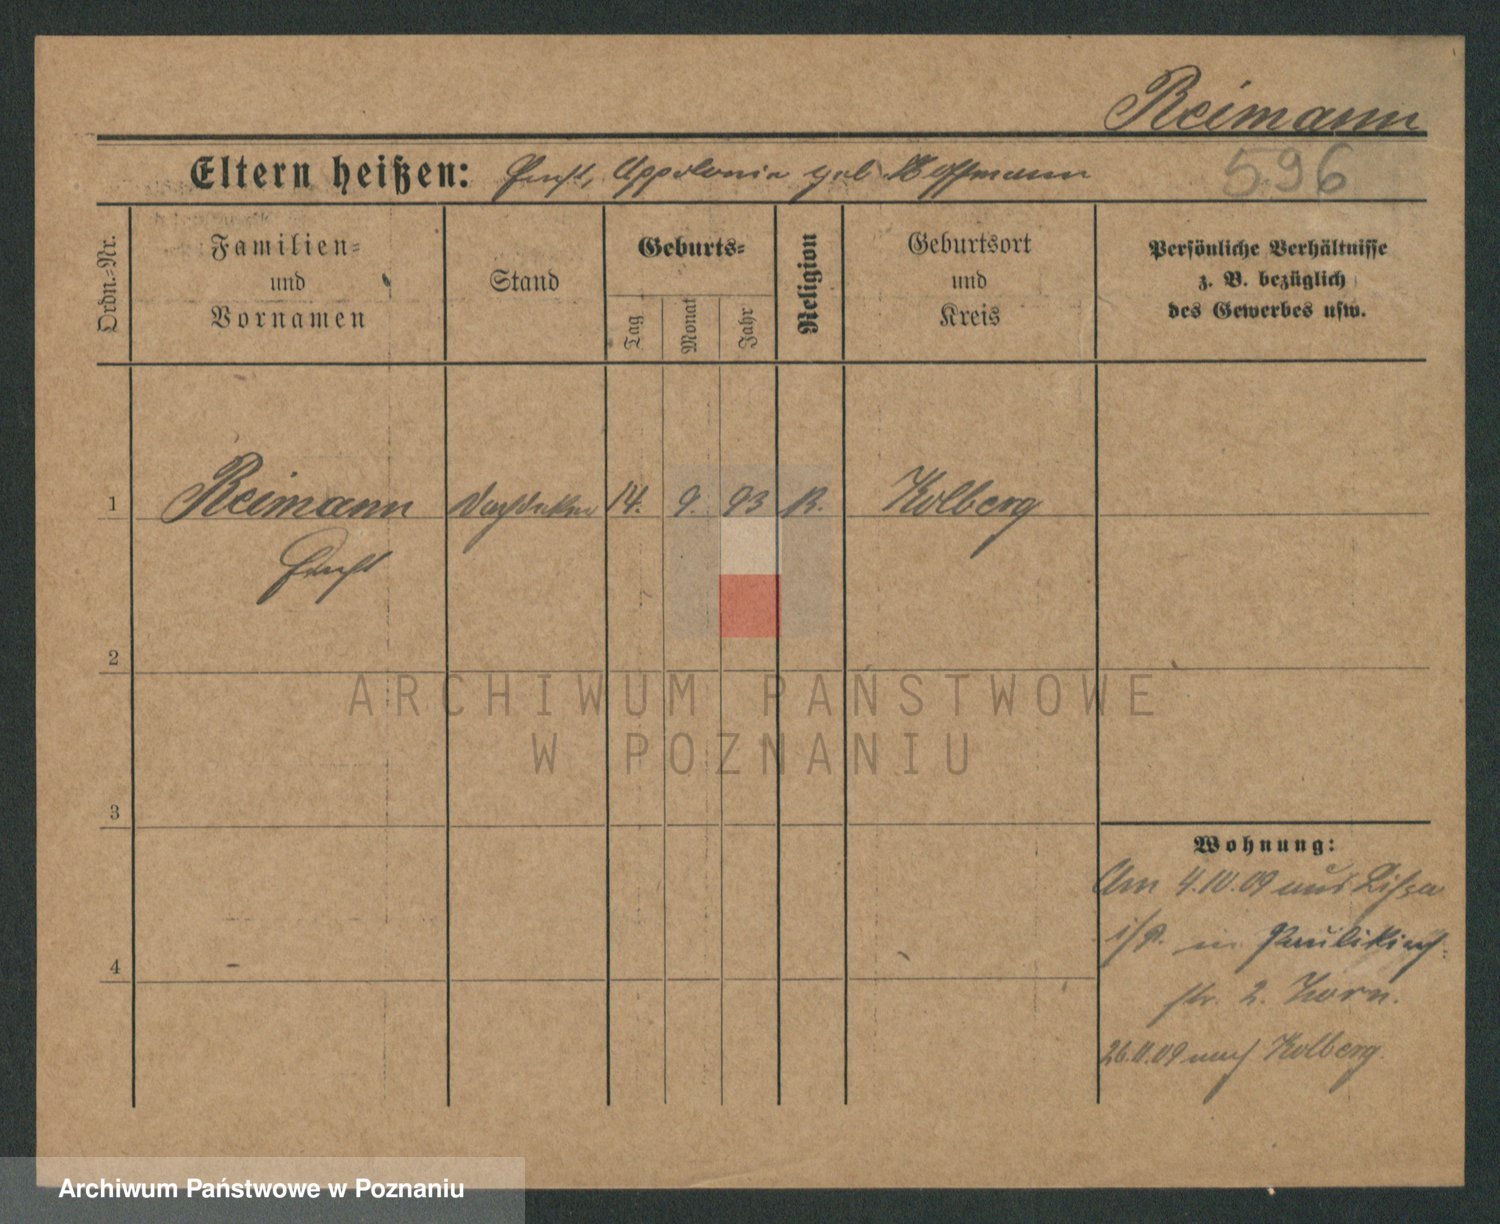 Reimann
Eltern heißen: Ernst, Appolonia geb. Hoffmann
596
Ordn.=Nr.
Familien=
und
Vornamen
Stand
Geburts=
Tag
Monat
Jahr
Religion
Geburtsort
und
Kreis
Persönliche Verhältnisse
z. B. bezüglich
des Gewerbes usw.
1 Reimann Dachdecker 14. 9. 93 K. Kolberg
Ernst
2
3
4
Wohnung:
Am 4.10.09 aus Lissa
i/P. in Paulikirch-
str. 2.
26.11.09 nach Kolberg.
ARCHIWUM PAŃSTWOWE
W POZNANIU
Archiwum Państwowe w Poznaniu